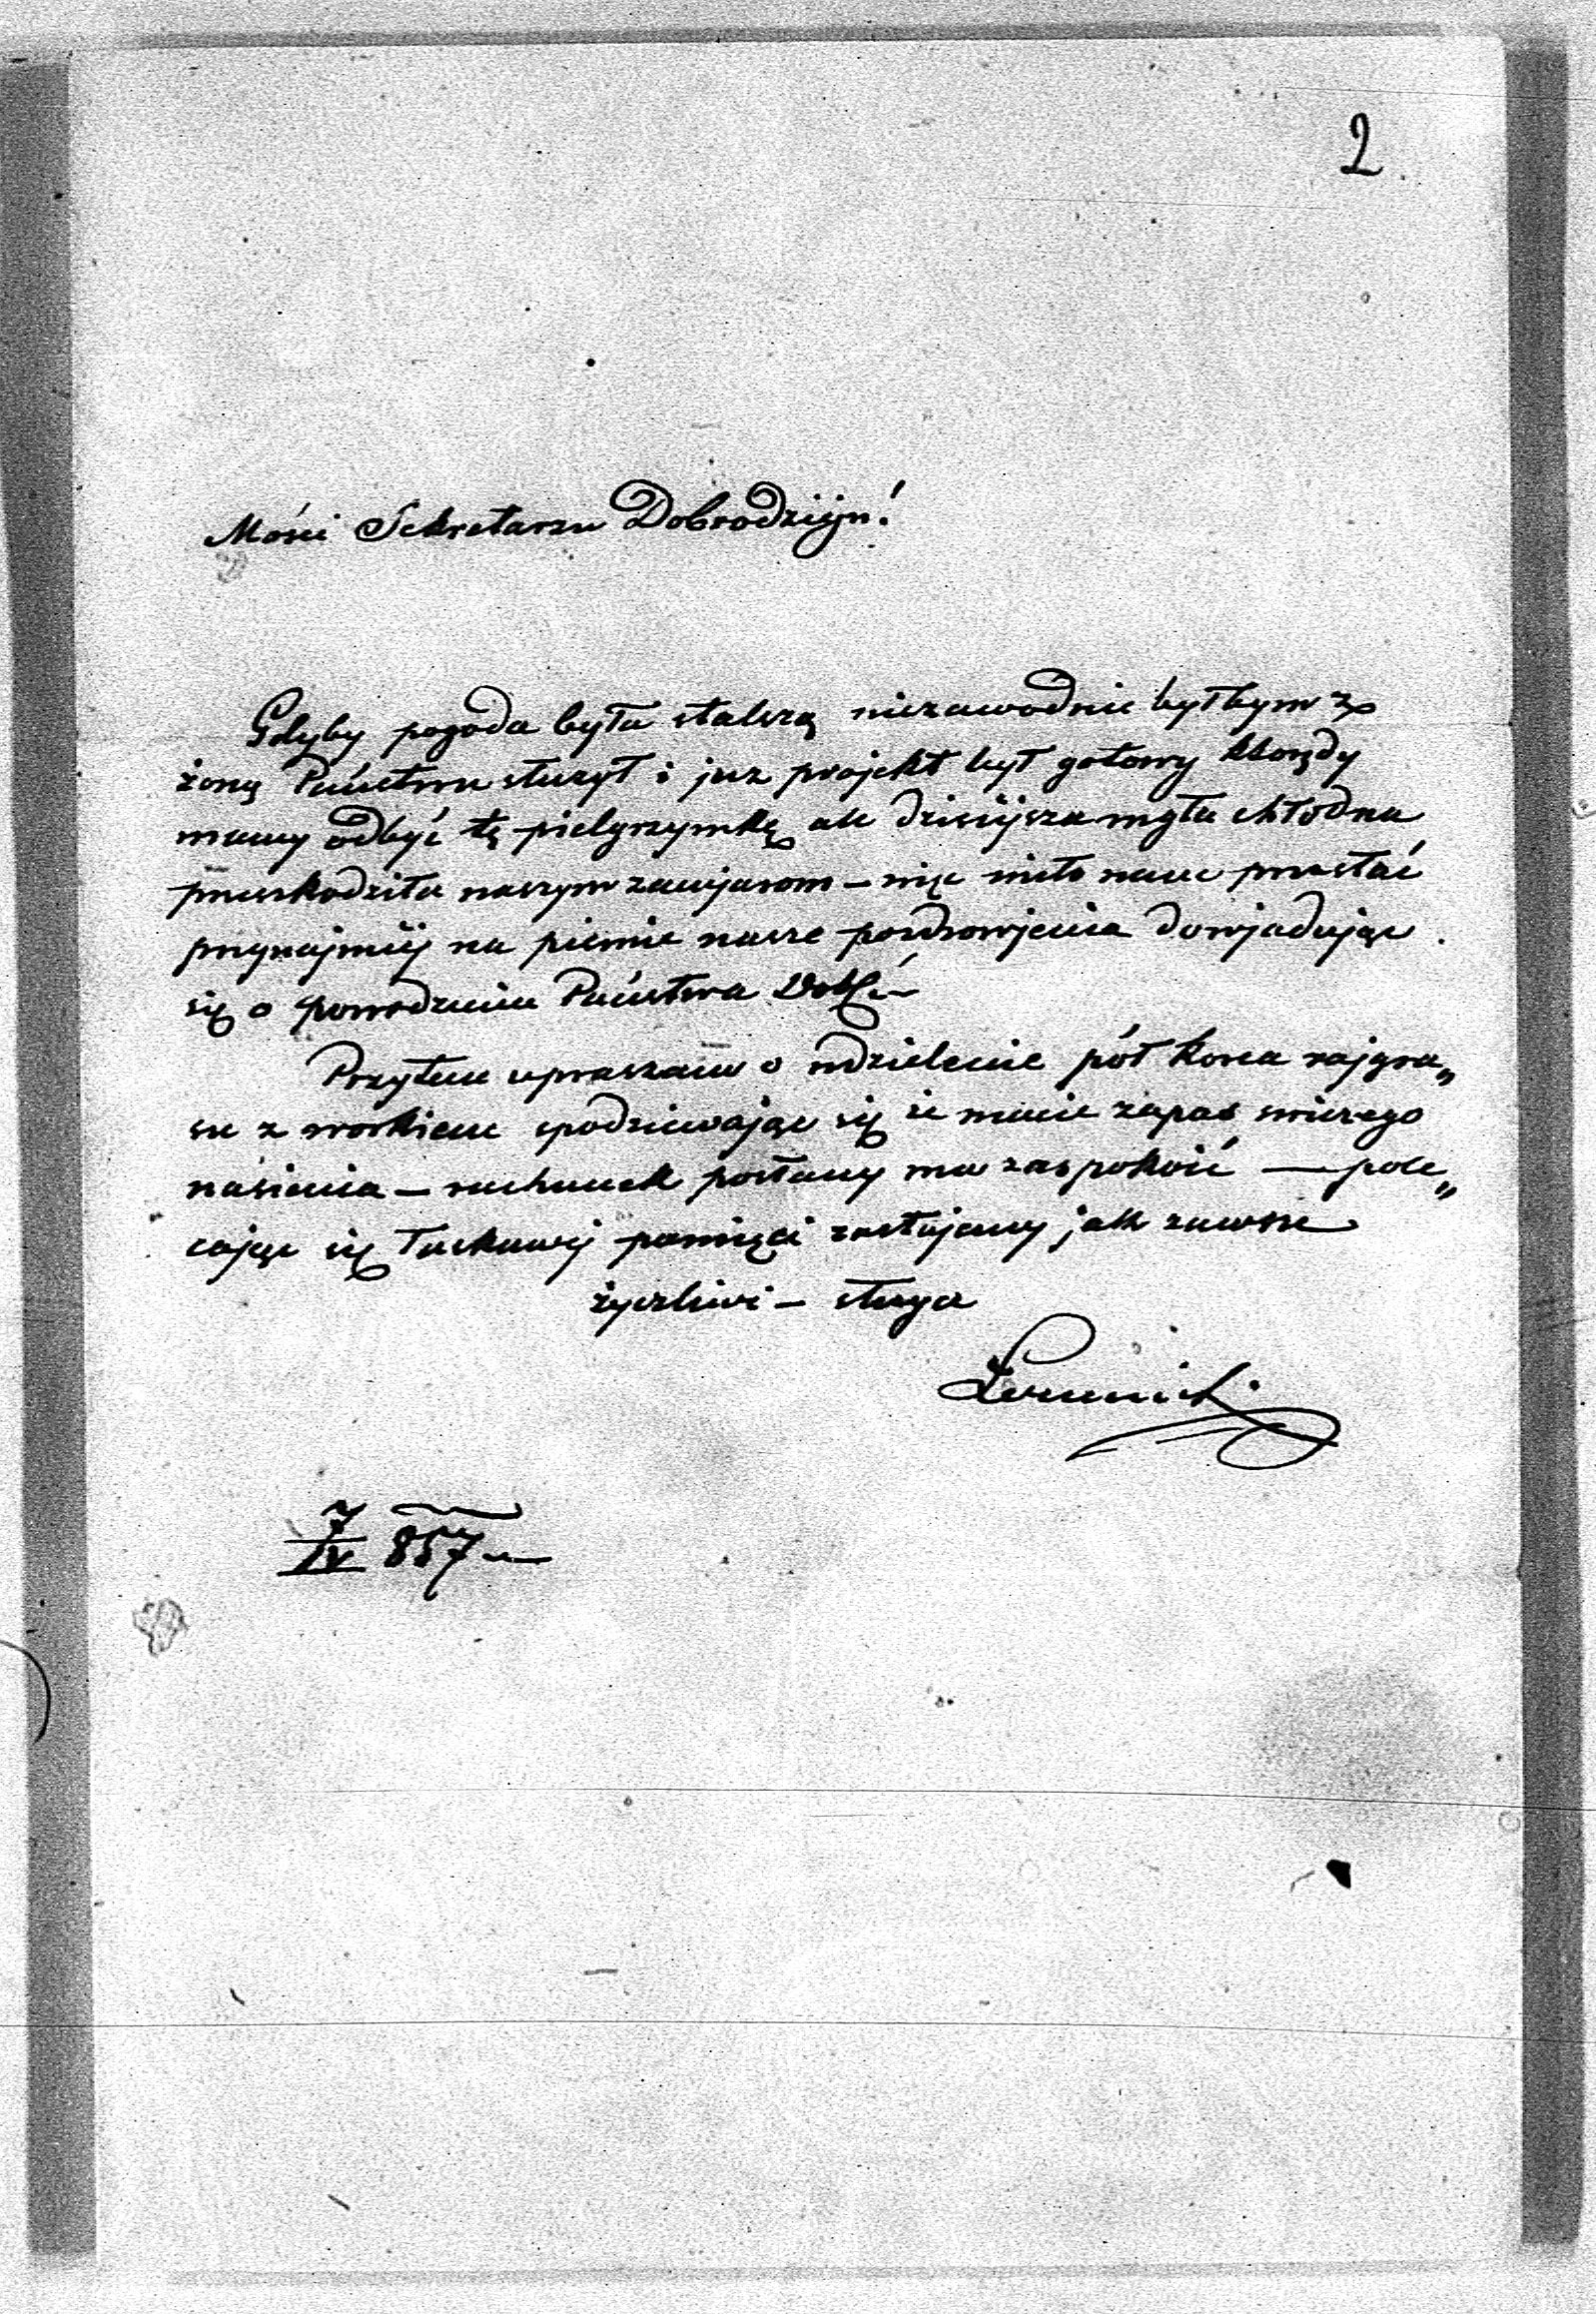 2
Mości Sekretarzu Dobrodzieju!
Gdyby pogoda była stalszą niezawodnie byłbym z
żoną Państwu służył i juz projekt był gotowy którędy
mamy odbyć tę pielgrzymkę ale dzisiejsza mgła chłodna
przeszkodziła naszym zamjarom – więc miło nam przesłać
przynajmiej na piśmie nasze pozdrowjenia dowjadując
się o powodzeniu Państwa Dobr. –
Przytem upraszam o udzielenie pół korca rajgra„
su z workiem spodziewając się że macie zapas swieżego
nasienia – rachunek posłany ma zaspokoić — pole„
cając się łaskawej pamięci zostajemy jak zawsze
życzliwi – sługa
7/IV 857